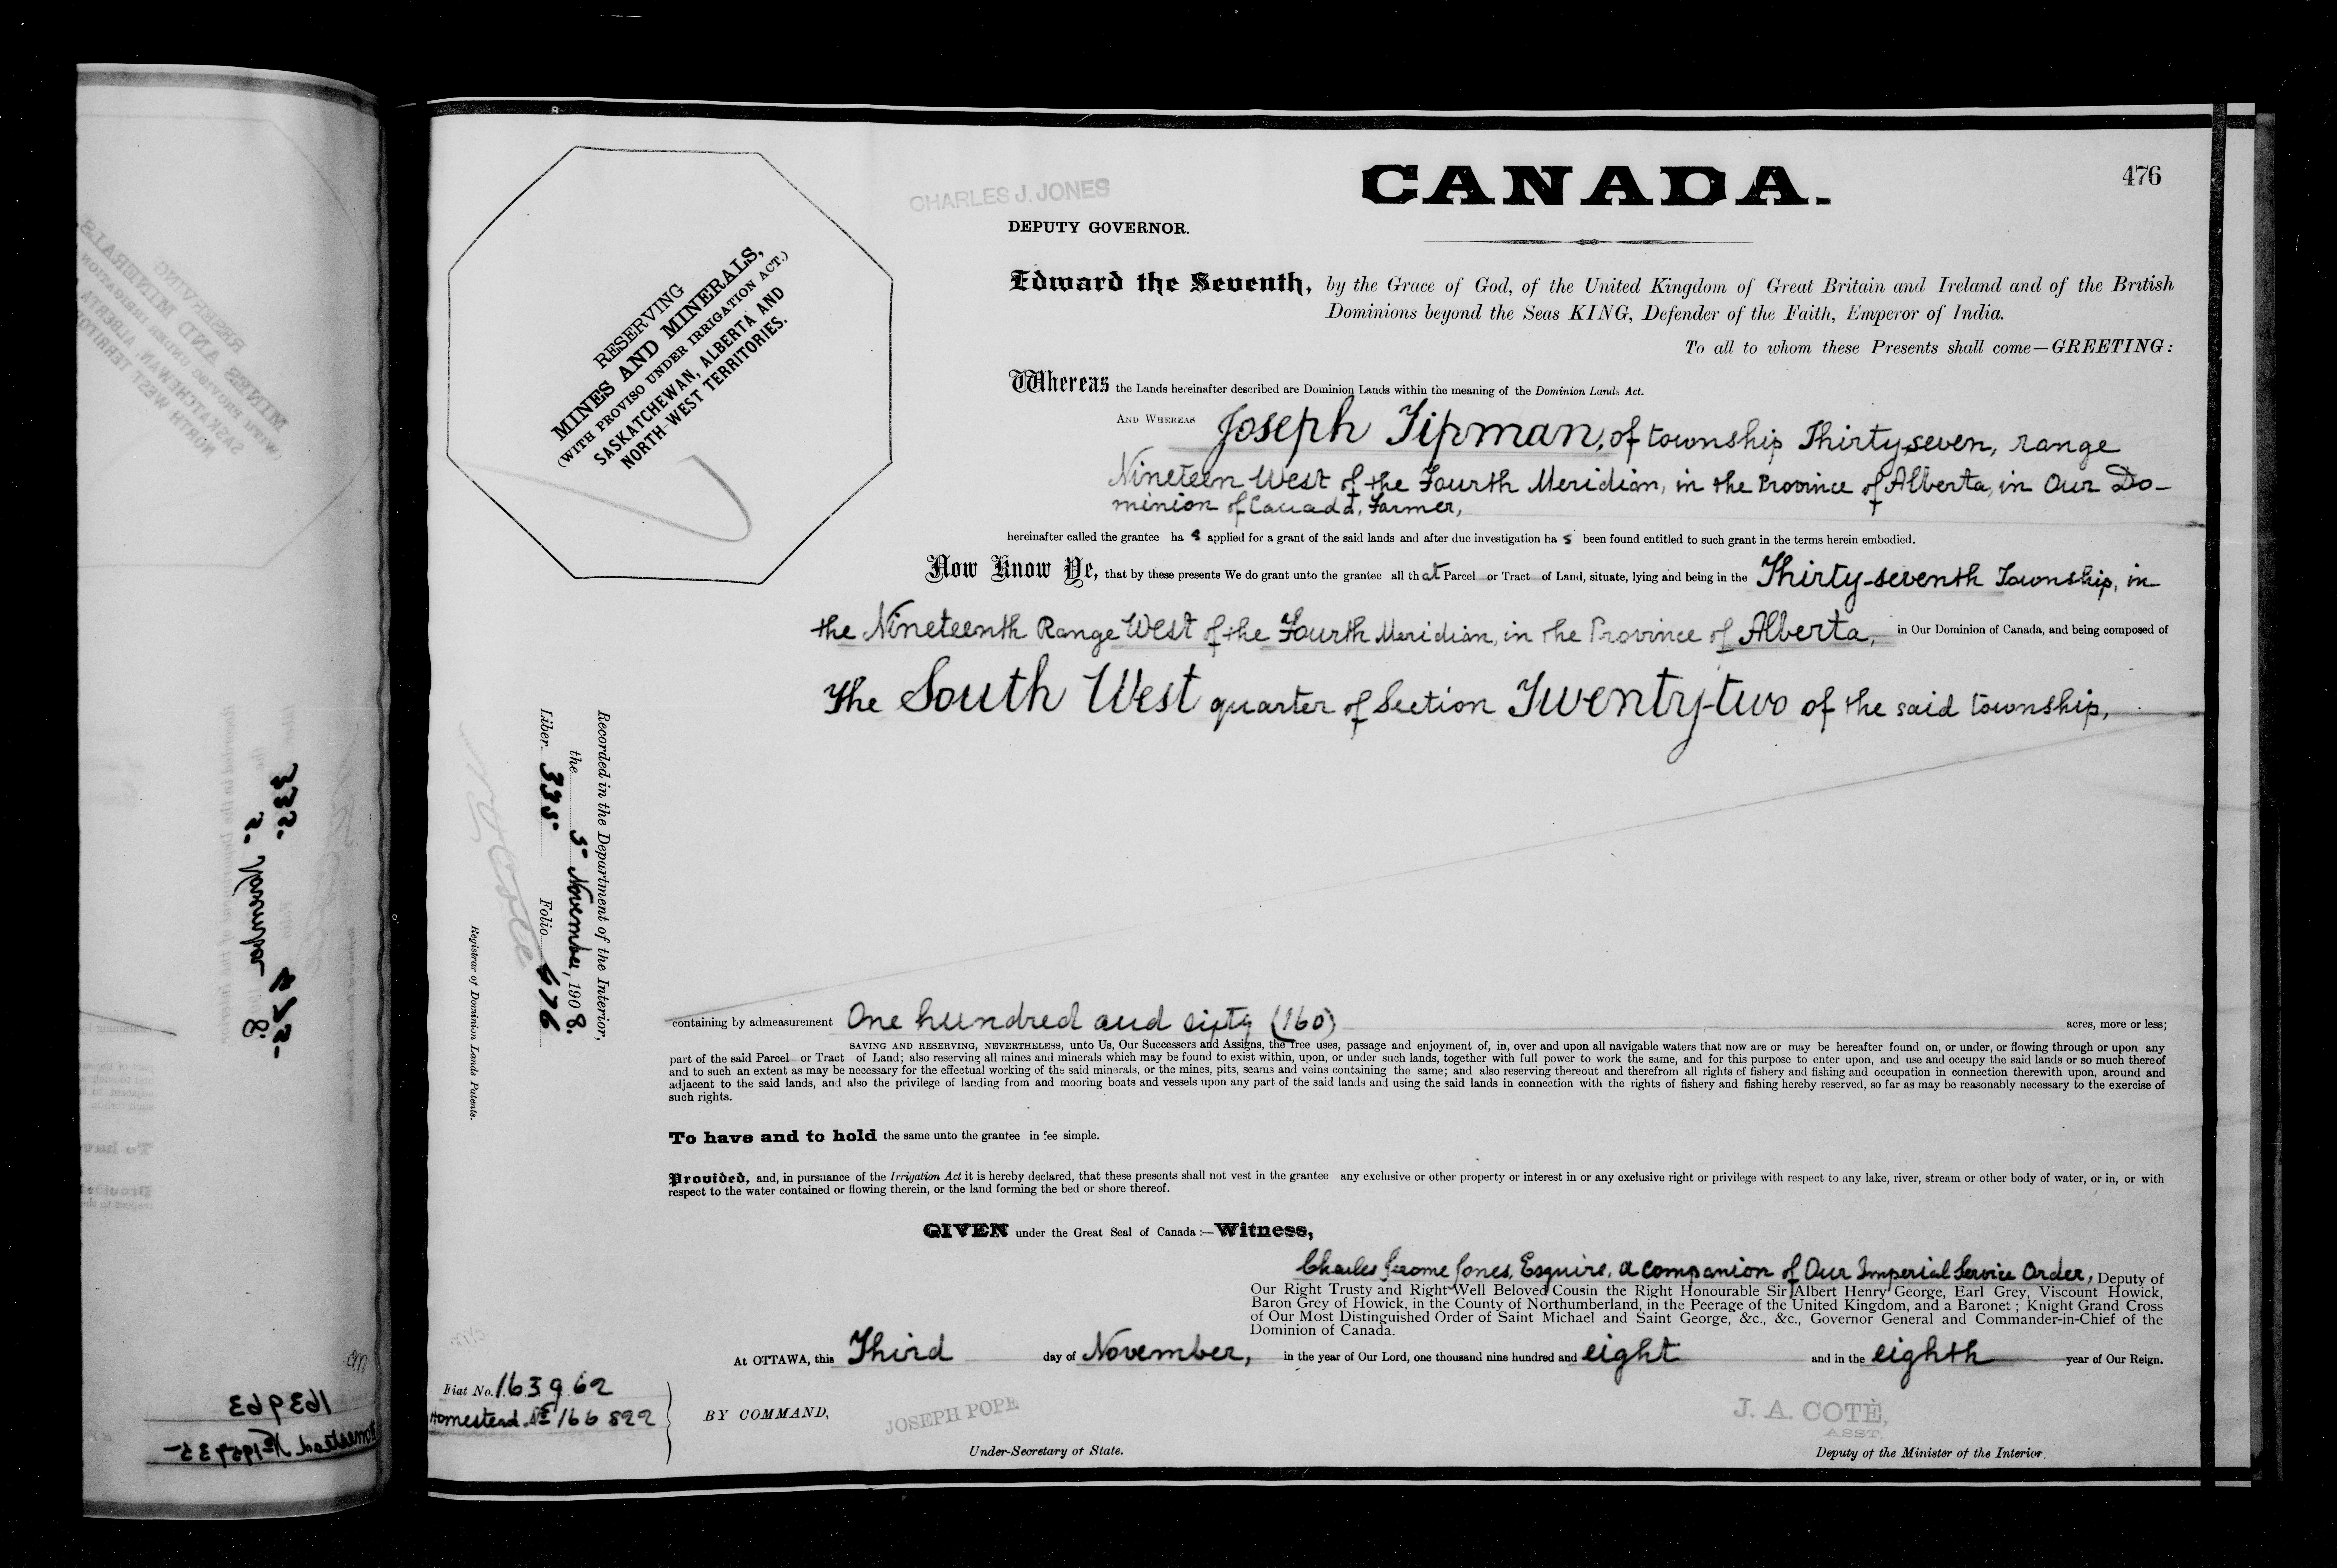 CANADA.
476
CHARLES J. JONES
DEPUTY GOVERNOR.
RESERVING
MINES AND MINERALS,
(WITH PROVISO UNDER IRRIGATION ACT.)
SASKATCHEWAN, ALBERTA AND
NORTH-WEST TERRITORIES.
Edward the Seventh, by the Grace of God, of the United Kingdom of Great Britain and Ireland and of the British
Dominions beyond the Seas KING, Defender of the Faith, Emperor of India.
To all to whom these Presents shall come—GREETING:
Whereas the Lands hereinafter described are Dominion Lands within the meaning of the Dominion Lands Act.
AND WHEREAS Joseph Tipman, of township Thirty-seven, range
Nineteen West of the Fourth Meridian, in the Province of Alberta, in Our Do-
minion of Canada, Farmer,
hereinafter called the grantee ha s applied for a grant of the said lands and after due investigation ha s been found entitled to such grant in the terms herein embodied.
Now Know Ye, that by these presents We do grant unto the grantee all that Parcel or Tract of Land, situate, lying and being in the Thirty-seventh Township, in
the Nineteenth Range West of the Fourth Meridian, in the Province of Alberta, in Our Dominion of Canada, and being composed of
The South West quarter of Section Twenty-two of the said township,
Recorded in the Department of the Interior,
the 5th November, 1908.
Liber 335 Folio 476
Cote
Registrar of Dominion Lands Patents.
containing by admeasurement One hundred and sixty (160) acres, more or less;
SAVING AND RESERVING, NEVERTHELESS, unto Us, Our Successors and Assigns, the free uses, passage and enjoyment of, in, over and upon all navigable waters that now are or may be hereafter found on, or under, or flowing through or upon any
part of the said Parcel or Tract of Land; also reserving all mines and minerals which may be found to exist within, upon, or under such lands, together with full power to work the same, and for this purpose to enter upon, and use and occupy the said lands or so much thereof
and to such an extent as may be necessary for the effectual working of the said minerals, or the mines, pits, seams and veins containing the same; and also reserving thereout and therefrom all rights of fishery and fishing and occupation in connection therewith upon, around and
adjacent to the said lands, and also the privilege of landing from and mooring boats and vessels upon any part of the said lands and using the said lands in connection with the rights of fishery and fishing hereby reserved, so far as may be reasonably necessary to the exercise of
such rights.
To have and to hold the same unto the grantee in fee simple.
Provided, and, in pursuance of the Irrigation Act it is hereby declared, that these presents shall not vest in the grantee any exclusive or other property or interest in or any exclusive right or privilege with respect to any lake, river, stream or other body of water, or in, or with
respect to the water contained or flowing therein, or the land forming the bed or shore thereof.
GIVEN under the Great Seal of Canada:—Witness,
Charles Jerome Jones, Esquire, a companion of Our Imperial Service Order, Deputy of
Our Right Trusty and Right Well Beloved Cousin the Right Honourable Sir Albert Henry George, Earl Grey, Viscount Howick,
Baron Grey of Howick, in the County of Northumberland, in the Peerage of the United Kingdom, and a Baronet; Knight Grand Cross
of Our Most Distinguished Order of Saint Michael and Saint George, &c., &c., Governor General and Commander-in-Chief of the
Dominion of Canada.
At OTTAWA, this Third day of November, in the year of Our Lord, one thousand nine hundred and eight and in the eighth year of Our Reign.
Fiat No. 163962
Homestead No 166822
BY COMMAND,
JOSEPH POPE
Under-Secretary of State.
J. A. COTÉ,
ASST.
Deputy of the Minister of the Interior.